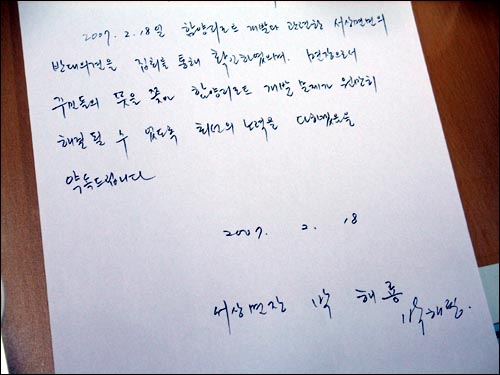 2007. 2. 18일 함양리조트 개발과 관련한 서상면민의
반대의견을 집회를 통해 확인하였으며. 면장으로서
주민들의 뜻을 쫓아 함양리조트 개발 문제가 원만히
해결 될 수 있도록 최선의 노력을 다하겠음을
약속드립니다
2007. 2. 18
서상면장 박 해 룡 박해룡.